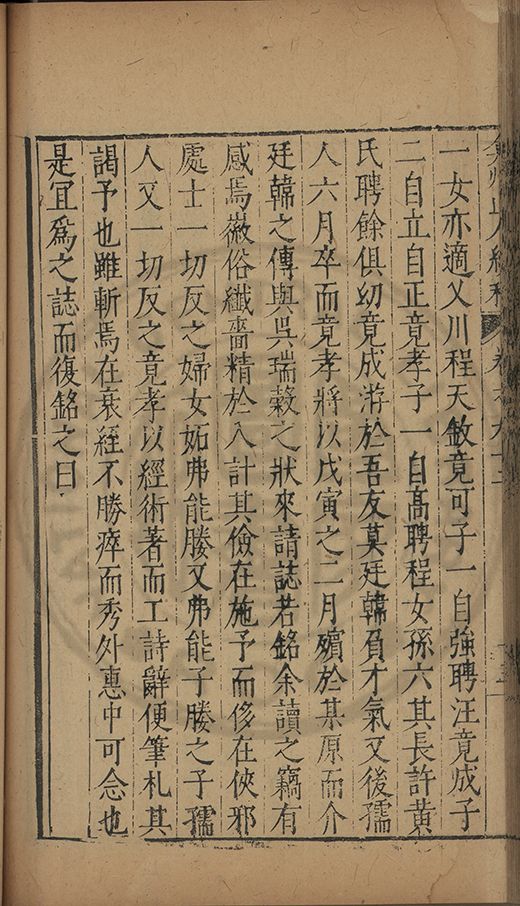 弇州山人續稿 卷之九十三
一女亦適乂川程天敘竟可子一自強聘汪竟成子
二自立自正竟孝子一自高聘程女孫六其長許黃
氏聘餘俱幼竟成游於吾友莫廷韓負才氣又後孺
人六月卒而竟孝將以戊寅之二月殯於某原而介
廷韓之傳與吳瑞穀之狀來請誌若銘余讀之竊有
感焉嶶俗纖嗇精於入計其儉在施予而侈在俠邪
處士一切反之婦女妬弗能勝又弗能子勝之子孺
人又一切反之竟孝以經術著而工詩辭便筆札其
謁予也雖斬焉在衰絰不勝瘁而秀外惠中可念也
是宜爲之誌而復銘之曰